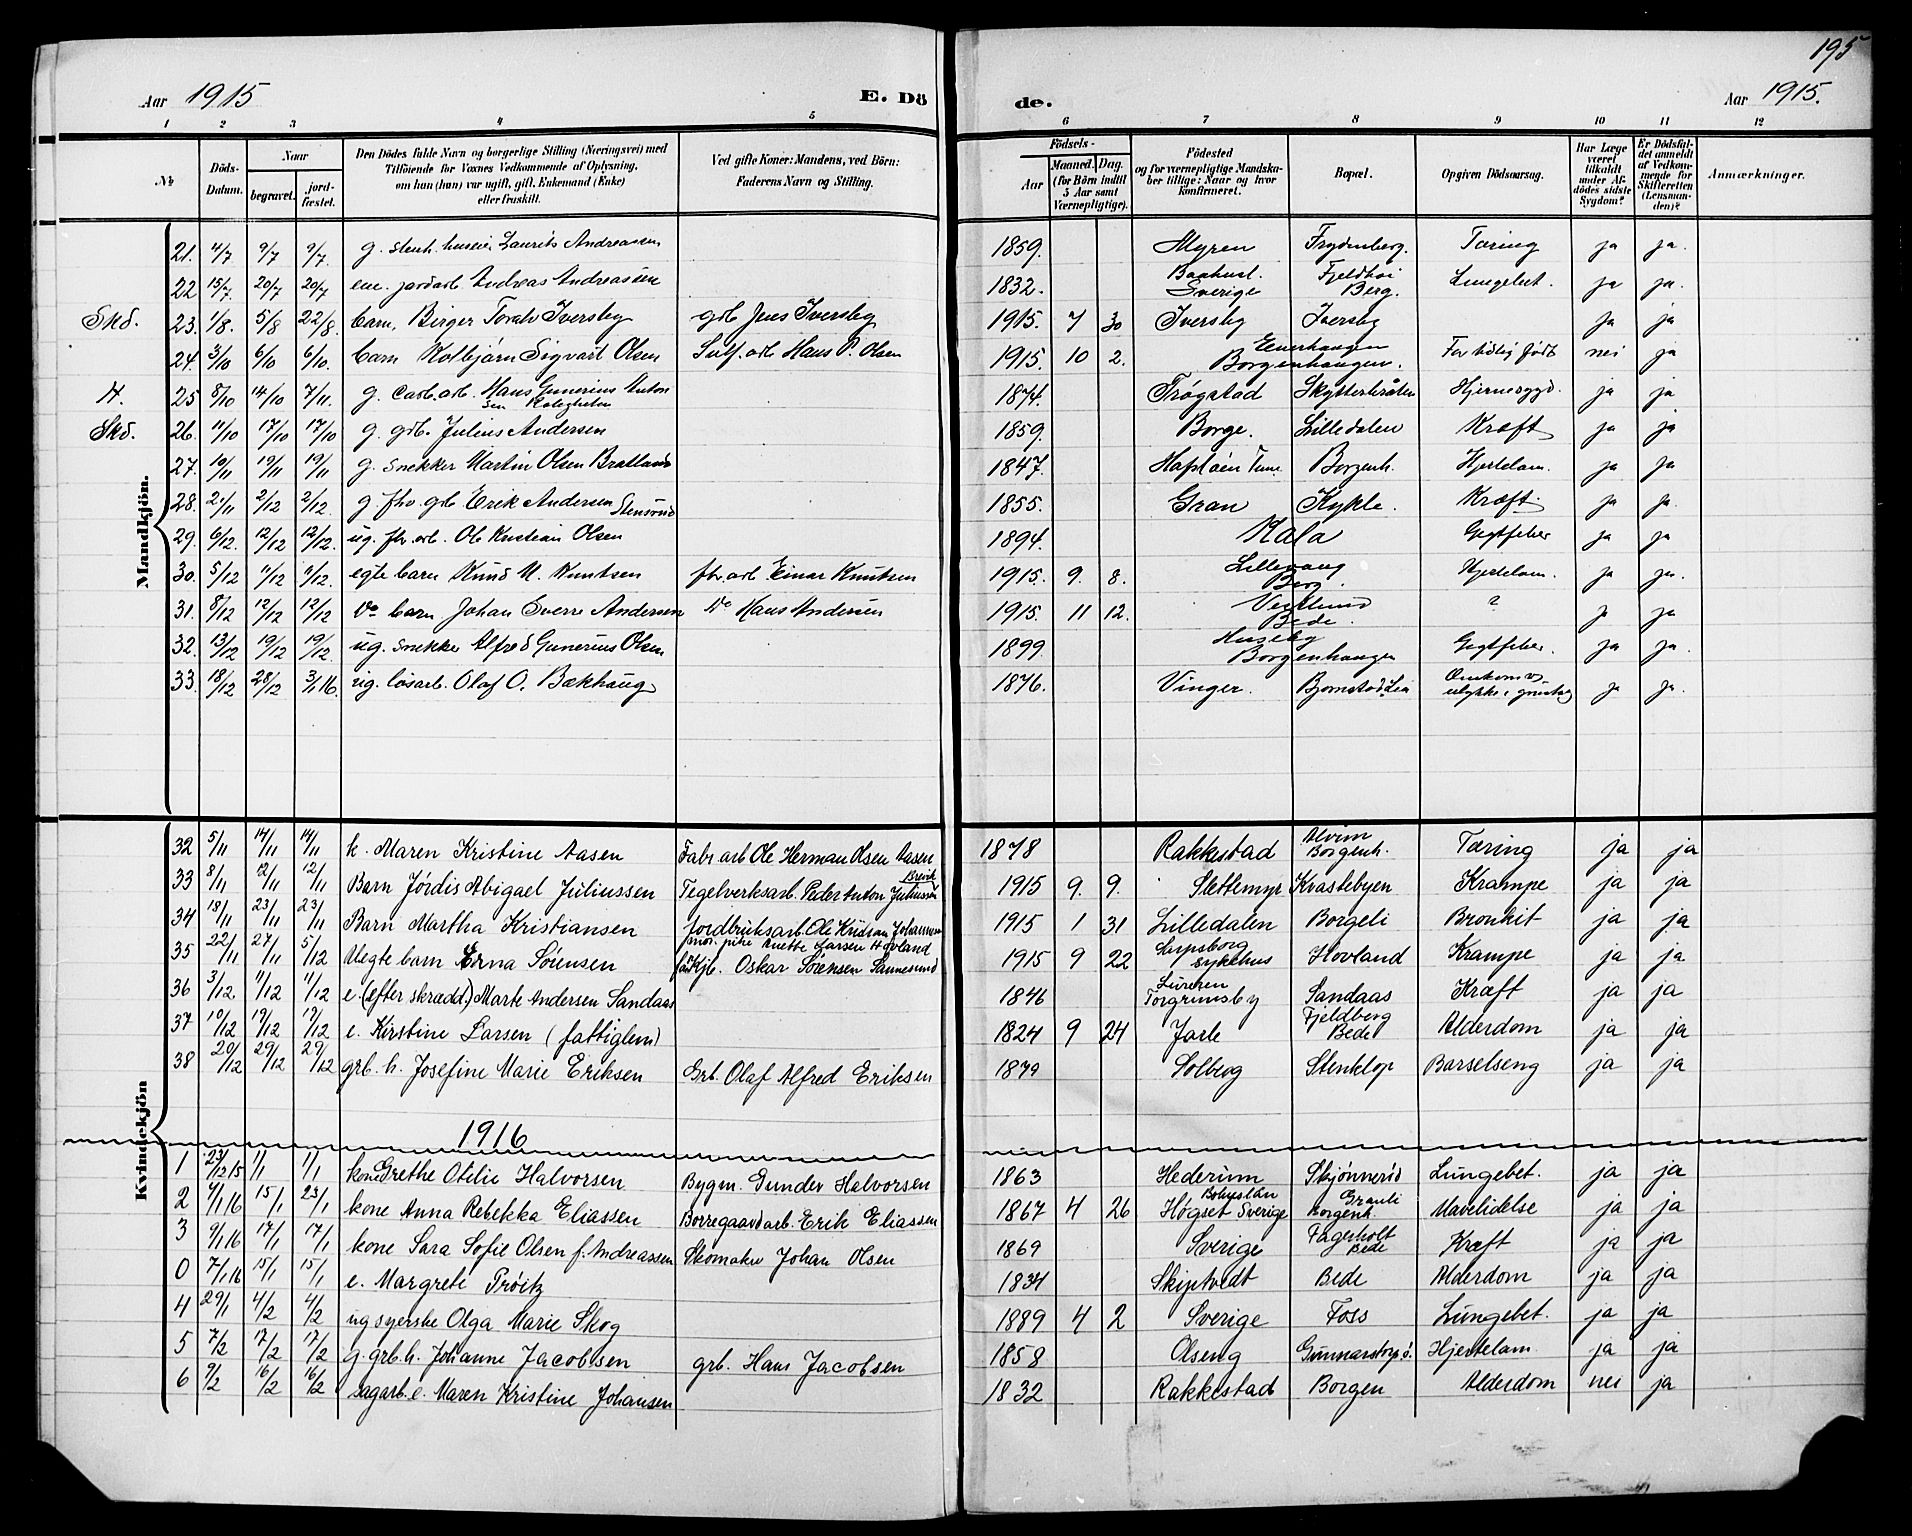 195
Aar 1915 E. Dö de. Aar 1915.
1 2 3 4 5 6 7 8 9 10 11 12
No
Döds-Datum.
Naar
begravet.
jordfæstet.
Den Dödes fulde Navn og borgerlige Stilling (Næringsvei) med
Tilföiende for Voxnes Vedkommende af Oplysning,
om han (hun) var ugift, gift, Enkemand (Enke)
eller fraskilt.
Ved gifte Koner: Mandens, ved Börn:
Faderens Navn og Stilling.
Födsels-
Aar
Maaned. Dag.
(for Börn indtil
5 Aar samt
Værnepligtige).
Födested
og for værnepligtige Mandskaber tillige: Naar og hvor
konfirmeret.
Bopæl.
Opgiven Dödsaarsag.
Har Læge
været
tilkaldt
under Afdödes sidste
Sygdom?
Er Dödsfaldet anmeldt
af Vedkommende for
Skifteretten
(Lensmanden)?
Anmærkninger.
Mandkjön.
21. 4/7 9/7 9/7. g. stenh. huseier Laurits Andreassen 1859. Myren Frydenberg. Tæring ja ja.
22 15/7. 20/7 20/7 em. jordarb. Andreas Andreassen 1832. Baahusl. Sverige Fjeldhøi Berg. Lungebet. ja ja.
Skd. 23. 1/8. 5/8 22/8. barn, Birger Toralv Iversby grb Jens Iversby 1915. 7 30 Iversby Iversby ja ja
24. 3/10 6/10 6/10. barn Kolbjørn Sigvart Olsen Sulf. arb Hans P. Olsen 1915. 10 2. Enerhaugen Borgenhaugen. For tidlig født nei ja
H. 25 8/10 14/10 7/11. g. Carb. arb. Hans Gunerius Antonsen 1874. Trøgstad Hjernesygd. ja ja
Skd. 26. 11/10 17/10 17/10 g. grb. Julius Andersen 1859. Borge. Lilledalen Kræft ja ja
27. 10/11 19/11 19/11 g. snekker Martin Olsen Bratland 1847. Borgenh. Hjertelam. ja ja
28. 2/12 2/12. g. fhv. grb Erik Andersen Stensrud 1855. Gran Kykle. Kræft. ja ja.
29. 6/12. 12/12 12/12. ug. fbr. arb. Ole Kristian Olsen 1894. Kala Gigtfeber ja ja
30. 5/12 11/12 11/12. egte barn Knud M. Knutsen fbr. arb Einar Knutsen 1915. 9. 8. Lillevang Berg. Hjertelam. ja ja.
31. 8/12 12/12 12/12 Do barn Johan Sverre Andersen Do Hans Andersen 1915. 11 12. Bede. ? ja ja
32. 13/12 19/12 19/12 ug. snekker Alfred Gunerius Olsen 1899. Huseby Borgenhaugen Gigtfeber. ja ja.
33. 18/12 28/12 3/1 16. ug. løsarb. Olaf O. Bækhaug 1876. Vinger. Bjørnstad Lia Omkom v. ulykke i grustag ja ja.
Kvindekjön
32 5/11 14/11 14/11 k. Maren Kristine Aasen Fabr. arb Ole Herman Olsen Aasen 1878 Rakkestad Alvim Borgenh. Tæring ja ja
33 8/11 12/11 12/11 Barn Jórdis Abigael Juliussen Tegelverksarb. Peder Anton Juliussen Brevik 1915 9. 9. Slettemyr Kvastebyen Krampe ja ja
34 18/11 23/11 23/11 Barn Martha Kristiansen Jordbruksarb. Ole Kristian Johannsen 1915 1 31 Lilledalen Borgeli Bronkit ja ja
35 22/11 27/11 5/12 Uegte barn Erna Sørensen mor. pike Anette Larsen Hovland far Kjb. Oskar Sørensen Sannesund 1915 9 22 Sarpsborg sykehus Hovland Krampe ja ja
36 3/12 11/12 11/12 e. (efter skrædd.) Marte Andersen Sandaas 1846 Torgrimsby Sandaas Kræft ja ja
37 10/12 19/12 19/12 e. Kirstine Larsen (fattiglem) 1824 9 24 Jarle Fjeldberg Bede Alderdom ja ja
38 20/12 29/12 29/12 grb. h. Josefine Marie Eriksen Grb. Olaf Alfred Eriksen 1879 Solberg Stenklop Barselseng ja ja
1916
1 23/12 15 1/1 1/1 kone Grethe Otelie Halvorsen Bygm. Gunder Halvorsen 1863 Hederum Skjønnerød Lungebet. ja ja
2 4/1 16 15/1 23/1 kone Anna Rebekka Eliassen Borregaardarb. Erik Eliassen 1867 4 26 Bohuslän Høgset Sverige Grauli Borgenh. Mavelidelse ja ja
3 9/1 16 17/1 17/1 kone Sara Sofie Olsen f. Andreassen Skomaker Johan Olsen 1869 Sverige Fagerholt Bede Kræft ja ja
0 7/1 16 15/1 15/1 e. Margrete Prøitz 1834 Skiptvedt Bede Alderdom ja ja
4 29/1 4/2 4/2 ug syerske Olga Marie Skog 1889 4 2 Sverige Foss Lungebet. ja ja
5 7/2 17/2 17/2 g. grb. h. Johanne Jacobsen grb. Hans Jacobsen 1858 Olseng Gunnarstorp ö. Hjertelam ja ja
6 9/2 16/2 16/2 sagarb. e. Maren Kristine Johansen 1832 Rakkestad Borgen Alderdom nei ja